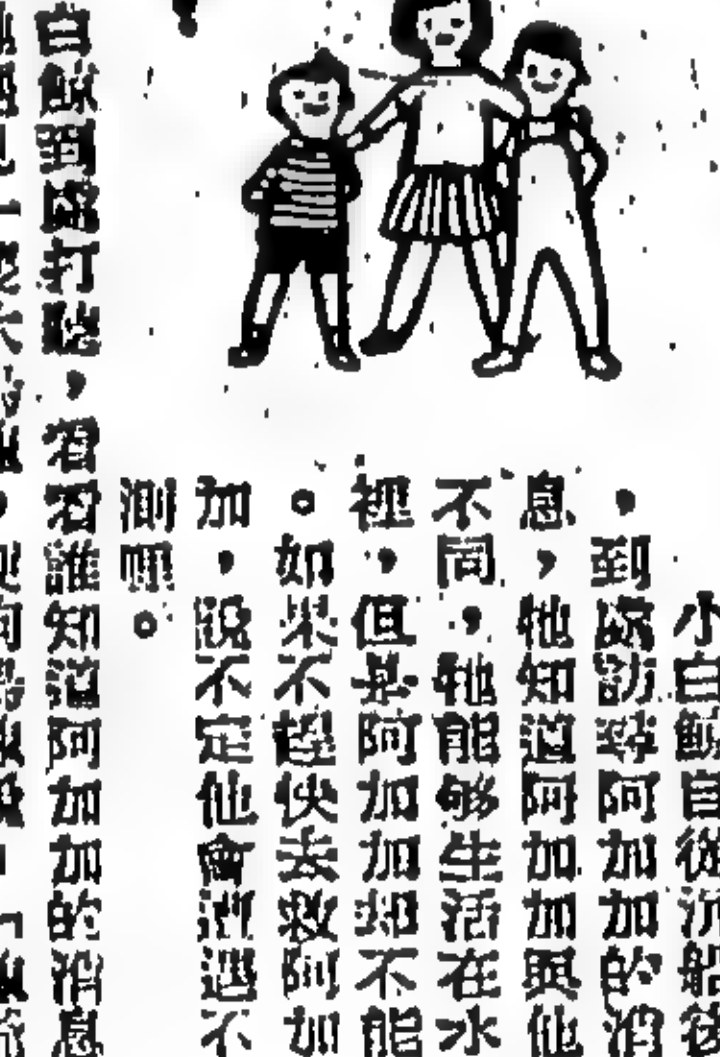 小白鯨自從沉船後
，到處訪尋阿加加的消
息，牠知道阿加加與他
不同，牠能够生活在水
裡，但是阿加加却不能
。如果不趕快去救阿加
加，說不定他會遭遇不
測呢。
白鯨到處打聽，看看誰知道阿加加的消息